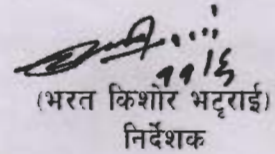 ११/६
(भरत किशोर भट्टराई)
निर्देशक